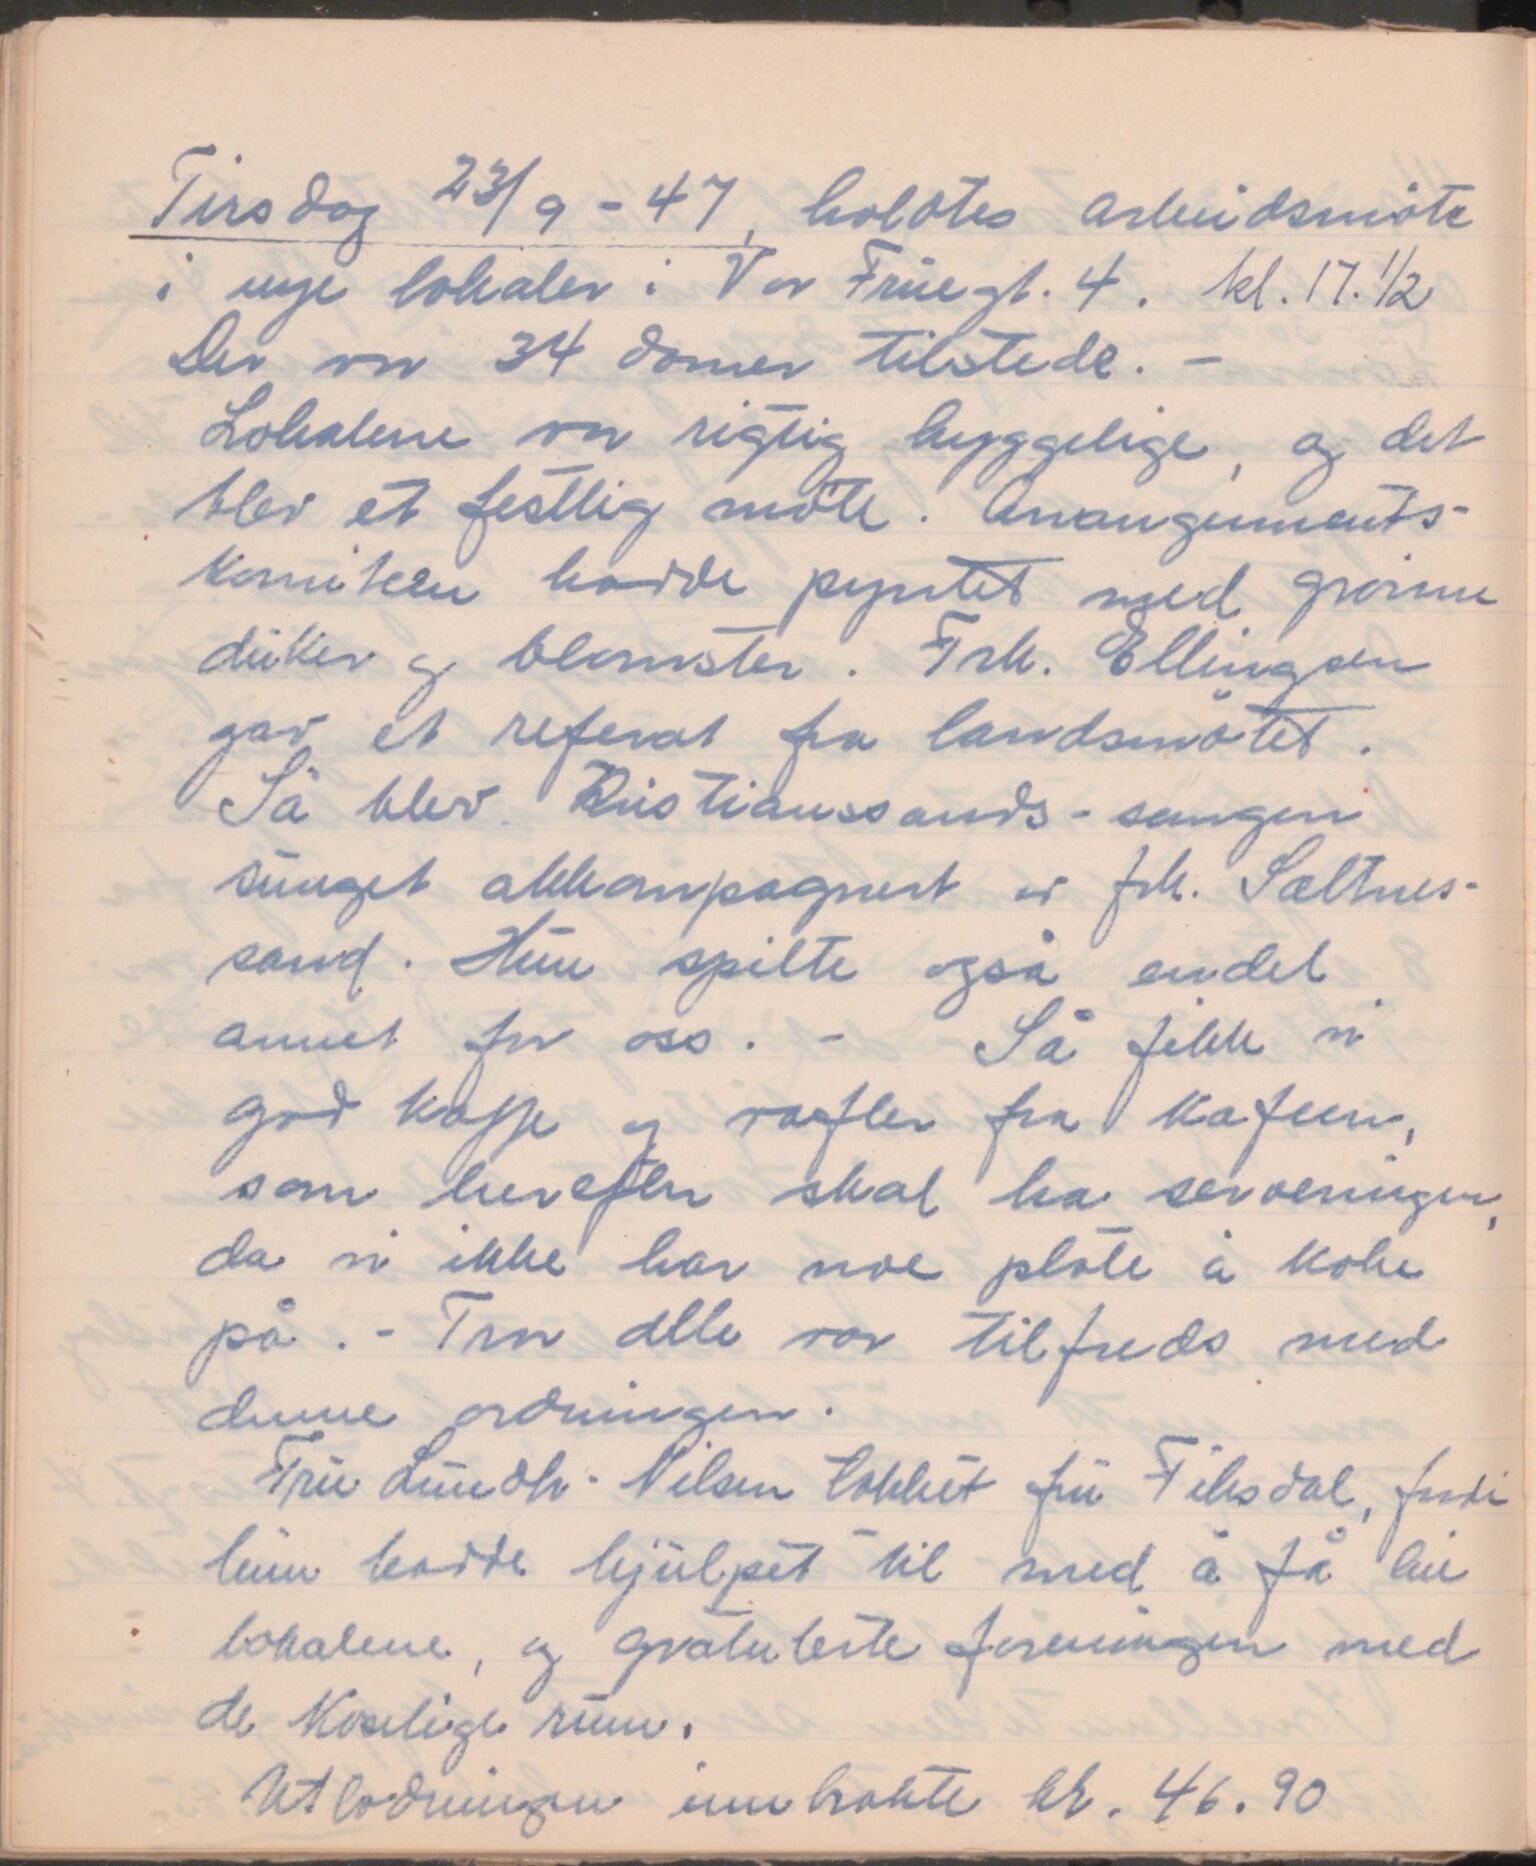 Tirsdag 23/9 - 47, holdtes arbeidsmöte
i nye lokaler i Vor Frue gt. 4. kl. 17.1/2
Der var 34 damer tilstede. -
Lokalene var rigtig hyggelige, og det
blev et festlig möte. Arrangements-
komiteen hadde pyntet med grönne
duker og blomster. Frk. Ellingsen
gav et referat fra landsmötet.
Så blev Kristianssands-sangen
sunget akkompagnert av frk. Saltnes-
sand. Hun spilte også endel
annet for oss. - Så fikk vi
god kaffe og vafler fra kafeen,
som herefter skal ha serveringen,
da vi ikke har noe plate å koke
på. - Tror alle var tilfreds med
denne ordningen.
Fru Lundh-Nilsen takket fru Fiksdal, fordi
hun hadde hjulpet til med å få leie
lokalene, og gratulerte foreningen med
de koselige rum.
Utlodningen innbrakte kr. 46.90